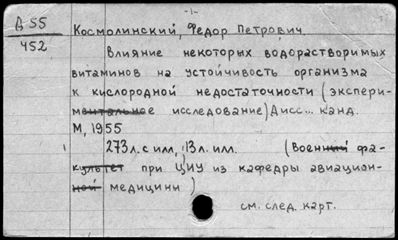 -1-
Д 55
452
Космолинский, Федор Петрович.
Влияние некоторых водорастворимых
витаминов на устойчивость организма
к кислородной недостаточности (экспери-
ментальное исследование) Дисс... канд.
М, 1955
273 л. с илл, 13 л. илл. (Военный фа-
культет при ЦИУ из кафедры авиацион-
ной медицины)
см. след. карт.